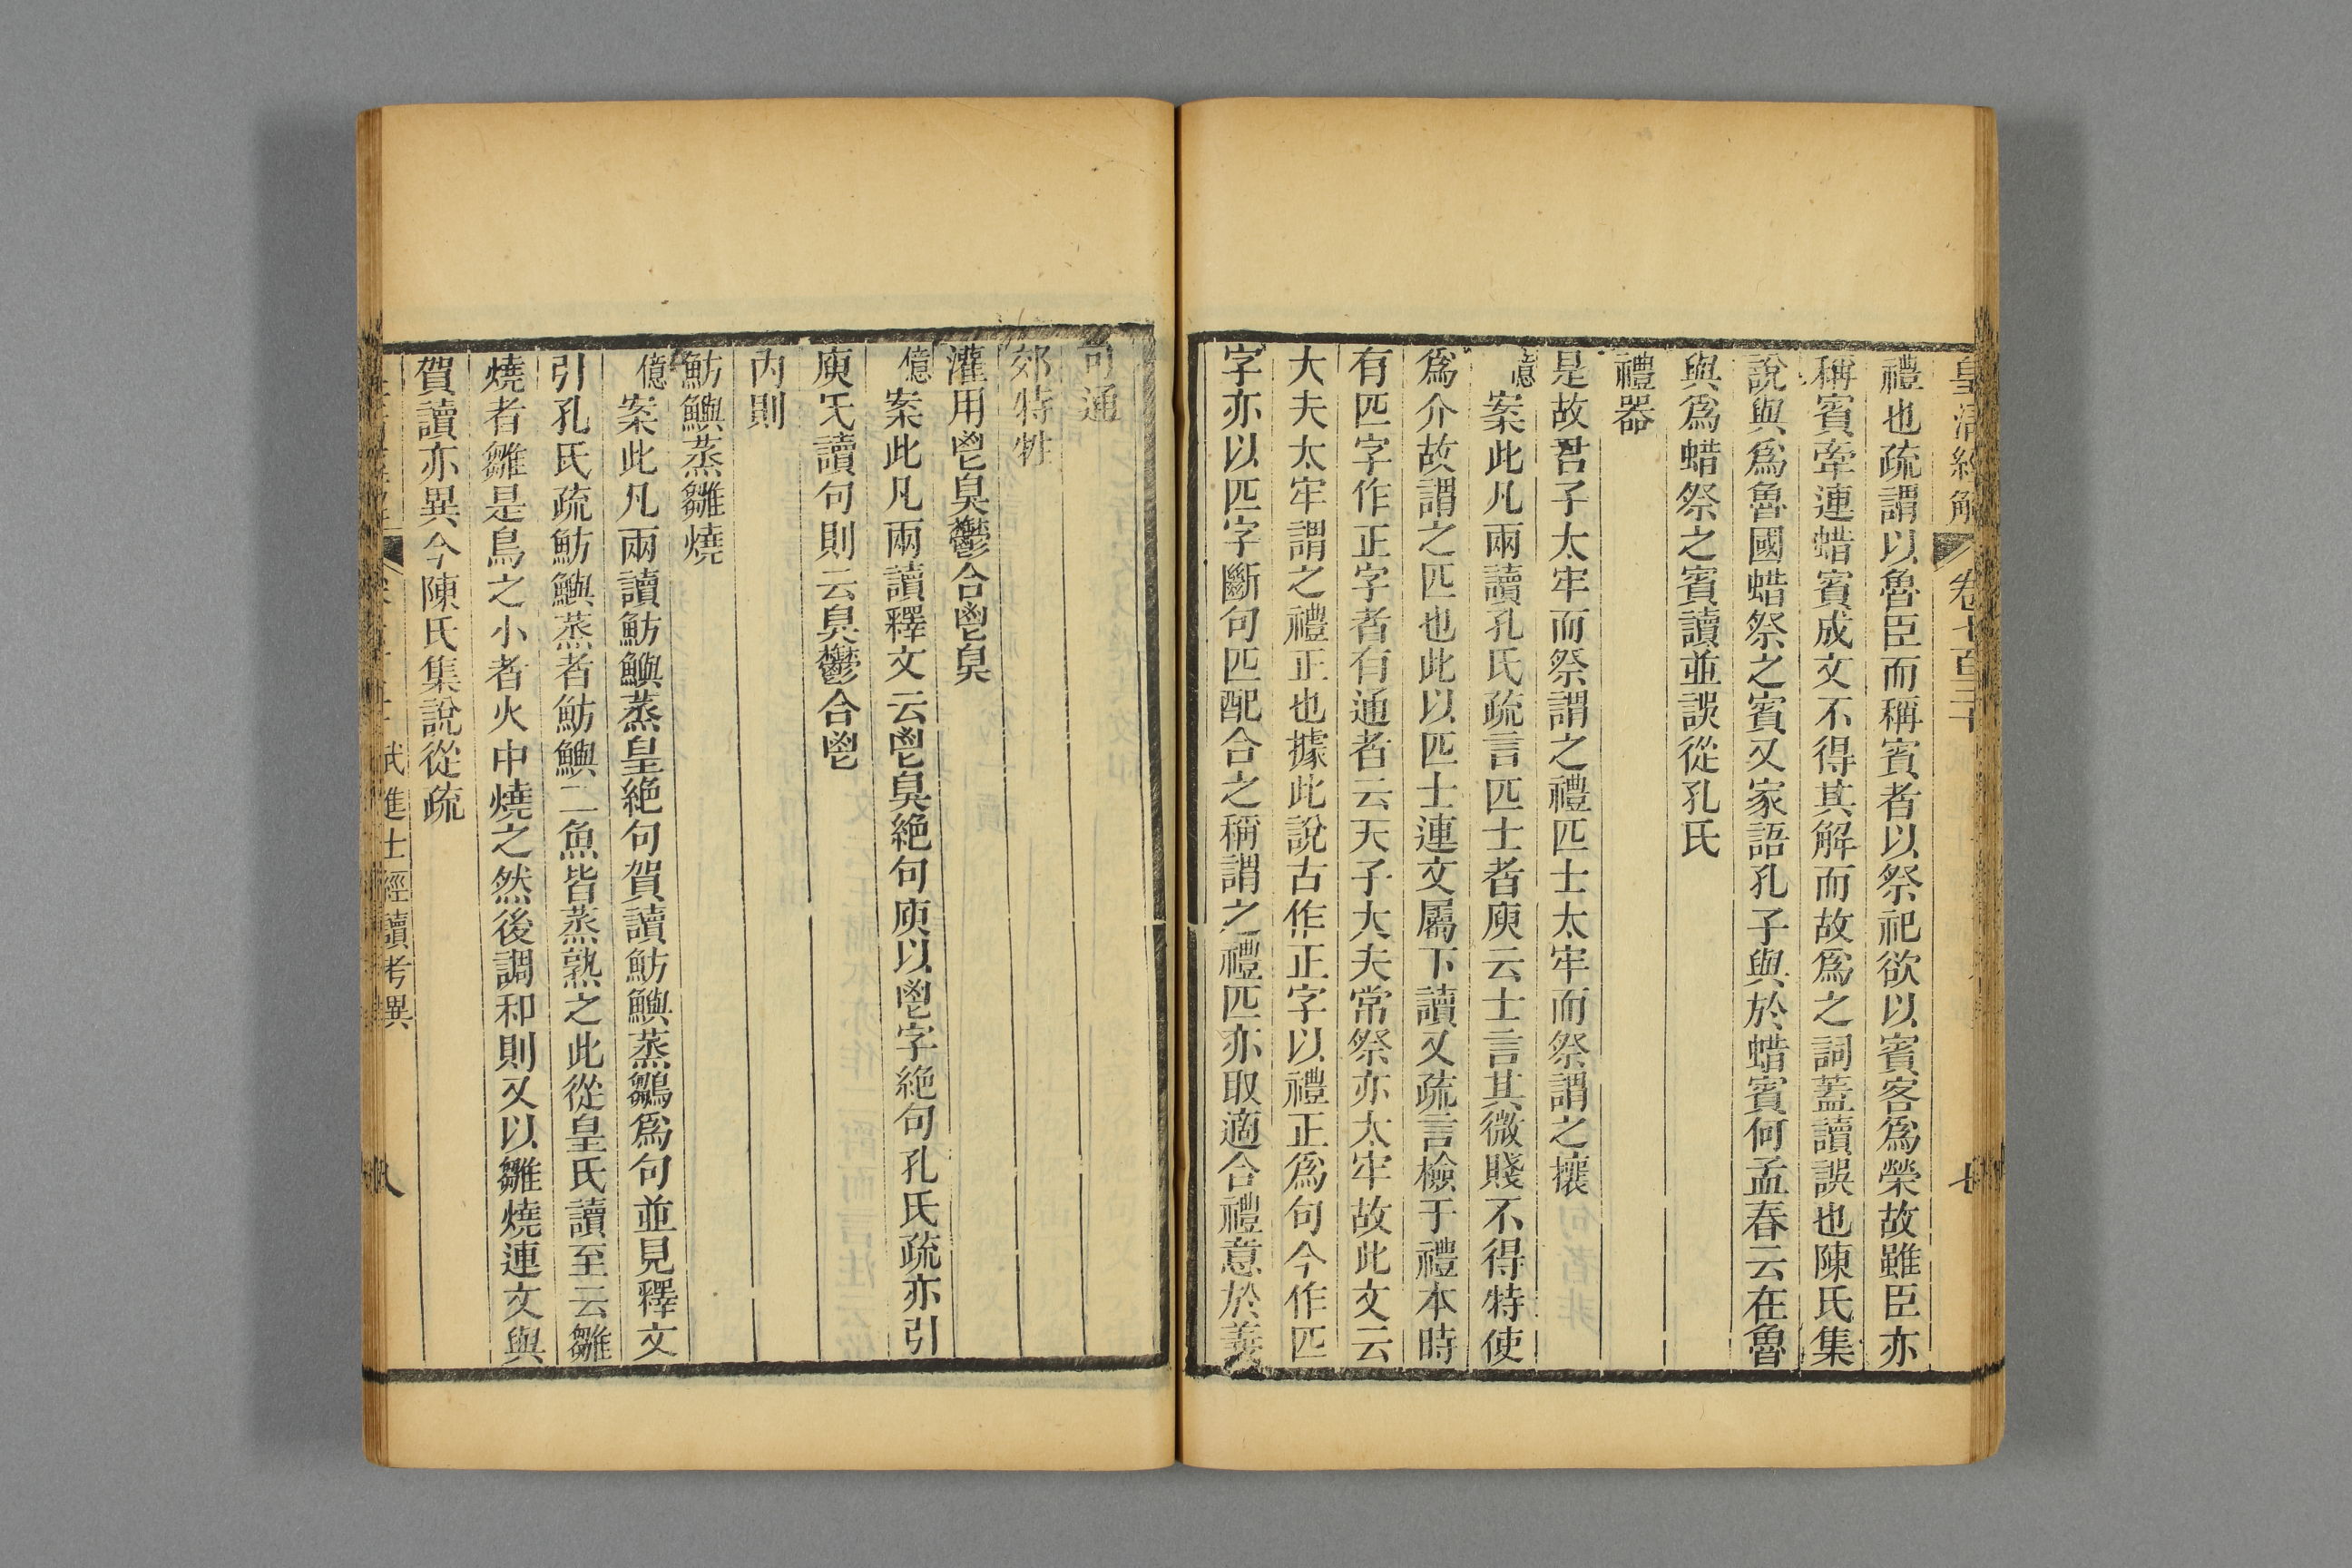 皇清經解 卷七百三十 七
禮也疏謂以魯臣而稱賓者以祭祀欲以賓客爲榮故雖臣亦
稱賓牽連蜡賓成文不得其解而故爲之詞蓋讀誤也陳氏集
說與爲魯國蜡祭之賓又家語孔子與於蜡賓何孟春云在魯
與爲蜡祭之賓讀並誤從孔氏
禮器
是故君子太牢而祭謂之禮匹士太牢而祭謂之攘
億案此凡兩讀孔氏疏言匹士者庾云士言其微賤不得特使
爲介故謂之匹也此以匹士連文屬下讀又疏言檢于禮本時
有匹字作正字者有通者云天子大夫常祭亦太牢故此文云
大夫太牢謂之禮正也據此說古作正字以禮正爲句今作匹
字亦以匹字斷句匹配合之稱謂之禮匹亦取適合禮意於義
可通
郊特牲
灌用鬯臭鬱合鬯臭
億案此凡兩讀釋文云鬯臭絶句庾以鬯字絶句孔氏疏亦引
庾氏讀句則云臭鬱合鬯
內則
魴鱮蒸雛燒
億案此凡兩讀魴鱮蒸皇絶句賀讀魴鱮蒸鶵爲句並見釋文
引孔氏疏魴鱮蒸者魴鱮二魚皆蒸熟之此從皇氏讀至云雛
燒者雛是鳥之小者火中燒之然後調和則又以雛燒連文與
賀讀亦異今陳氏集說從疏
武進士經讀考異 八